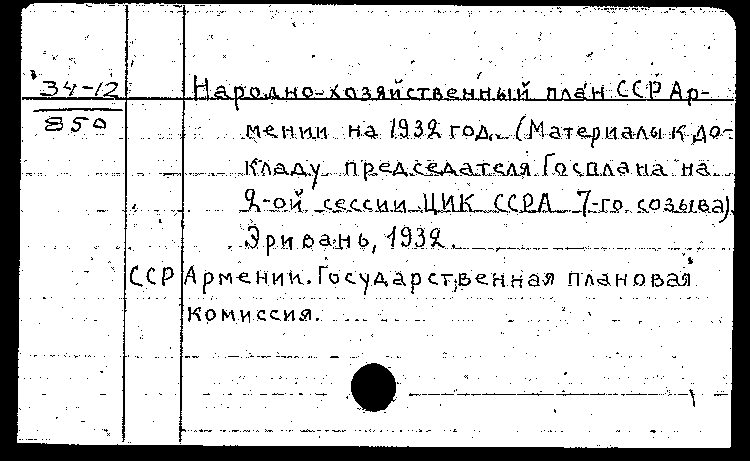 34-12
850
Народно-хозяйственный план ССР Ар-
мении на 1932 год. (Материалы к до-
кладу председателя Госплана на
2-ой сессии ЦИК ССРА 7-го созыва)
Эривань, 1932.
ССР Армении. Государственная плановая
комиссия.